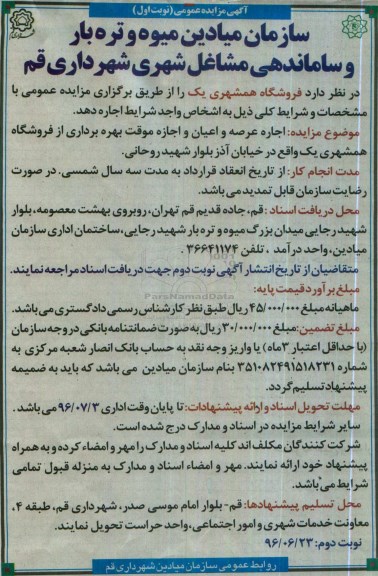 آگهی مزایده عمومی (نوبت اول)
سازمان میادین میوه و تره بار
و ساماندهی مشاغل شهری شهرداری قم
در نظر دارد فروشگاه همشهری یک را از طریق برگزاری مزایده عمومی با
مشخصات و شرایط کلی ذیل به اشخاص واجد شرایط اجاره دهد.
موضوع مزایده: اجاره عرصه و اعیان و اجازه موقت بهره برداری از فروشگاه
همشهری یک واقع در خیابان آذز بلوار شهید روحانی.
مدت انجام کار: از تاریخ انعقاد قرارداد به مدت سه سال شمسی. در صورت
رضایت سازمان قابل تمدید می باشد.
محل دریافت اسناد: قم، جاده قدیم قم تهران، روبروی بهشت معصومه، بلوار
شهید رجایی میدان بزرگ میوه و تره بار شهید رجایی، ساختمان اداری سازمان
میادین، واحد درآمد ، تلفن ۳۶۶۴۱۱۷۴ .
متقاضیان از تاریخ انتشار آگهی نوبت دوم جهت دریافت اسناد مراجعه نمایند.
مبلغ برآورد قیمت پایه:
ماهیانه مبلغ ۴۵/۰۰۰/۰۰۰ ریال طبق نظر کارشناس رسمی دادگستری می باشد.
مبلغ تضمین: مبلغ ۳۰/۰۰۰/۰۰۰ ریال به صورت ضمانتنامه بانکی در وجه سازمان
(با حداقل اعتبار ۳ماه) یا واریز وجه نقد به حساب بانک انصار شعبه مرکزی به
شماره ۳۵۱۰۸۲۴۹۱۵۱۸۲۳۱ بنام سازمان میادین می باشد که باید به ضمیمه
پیشنهاد تسلیم گردد.
مهلت تحویل اسناد و ارائه پیشنهادات: تا پایان وقت اداری ۹۶/۰۷/۳ می باشد.
سایر شرایط مزایده در اسناد و مدارک درج شده است.
شرکت کنندگان مکلف اند کلیه اسناد و مدارک را مهر و امضاء کرده و به همراه
پیشنهاد خود ارائه نمایند. مهر و امضاء اسناد و مدارک به منزله قبول تمامی
شرایط می باشد.
محل تسلیم پیشنهادها: قم- بلوار امام موسی صدر، شهرداری قم، طبقه ۴،
معاونت خدمات شهری و امور اجتماعی، واحد حراست تحویل نمایند.
نوبت دوم: ۹۶/۰۶/۲۳
روابط عمومی سازمان میادین شهرداری قم
ParsNamadData